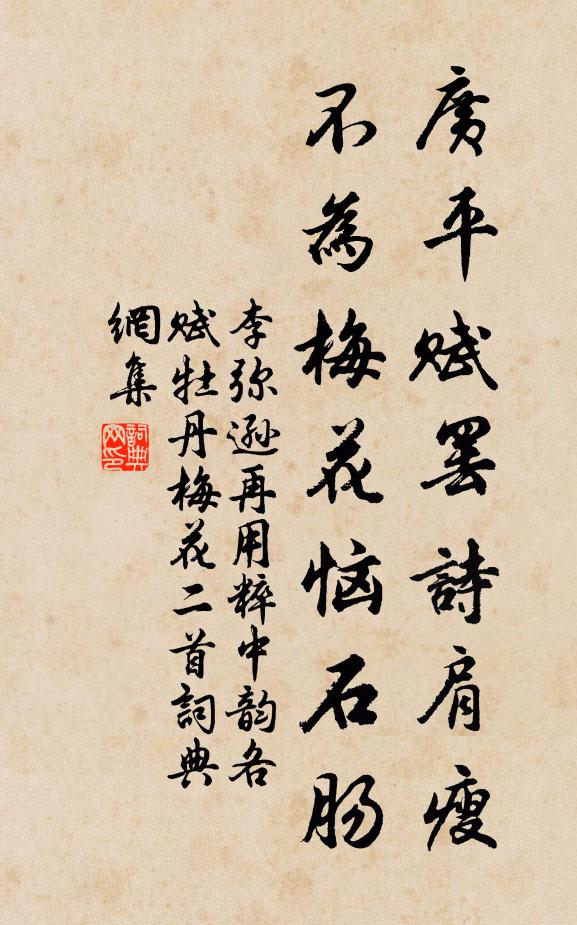 廣平賦罢詩肩瘦
不為梅花恼石肠
李弥遜再用粹中韵各
赋牡丹梅花二首詞典
網集
詞典
网印